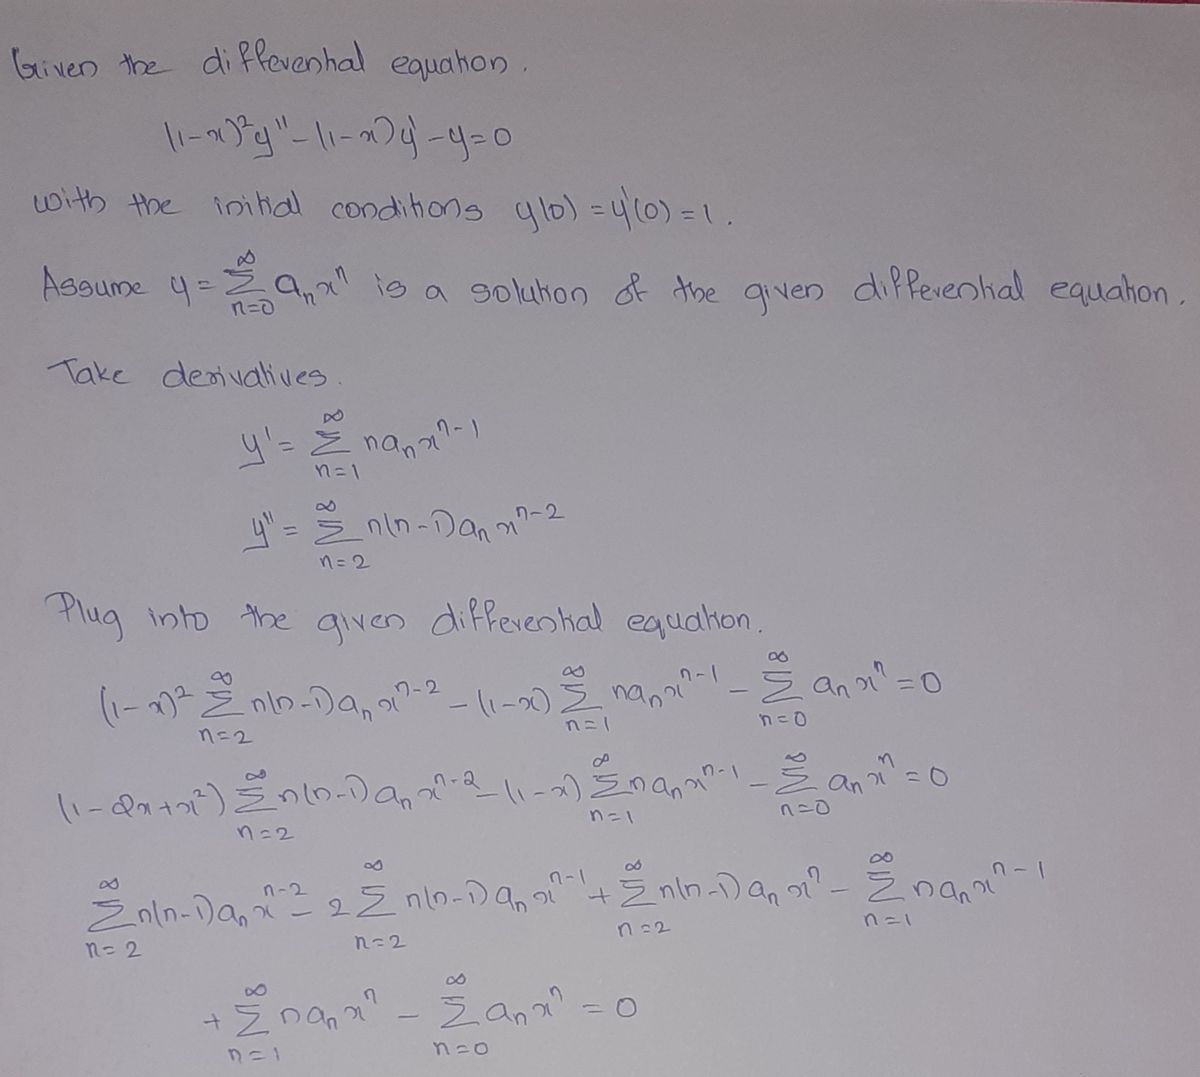 Given the differential equation.
(1-x)²y"-(1-x)y'-y=0
with the initial conditions y(0)=y'(0)=1.
Assume y=∑_{n=0}^{∞} aₙxⁿ is a solution of the given differential equation.
Take derivatives.
y'=∑_{n=1}^{∞} naₙx^{n-1}
y"=∑_{n=2}^{∞} n(n-1)aₙx^{n-2}
Plug into the given differential equation.
(1-x)²∑_{n=2}^{∞} n(n-1)aₙx^{n-2}-(1-x)∑_{n=1}^{∞} naₙx^{n-1}-∑_{n=0}^{∞} aₙxⁿ=0
(1-2x+x²)∑_{n=2}^{∞} n(n-1)aₙx^{n-2}-(1-x)∑_{n=1}^{∞} naₙx^{n-1}-∑_{n=0}^{∞} aₙxⁿ=0
∑_{n=2}^{∞} n(n-1)aₙx^{n-2}-2∑_{n=2}^{∞} n(n-1)aₙx^{n-1}+∑_{n=2}^{∞} n(n-1)aₙxⁿ-∑_{n=1}^{∞} naₙx^{n-1}
+∑_{n=1}^{∞} naₙxⁿ-∑_{n=0}^{∞} aₙxⁿ=0